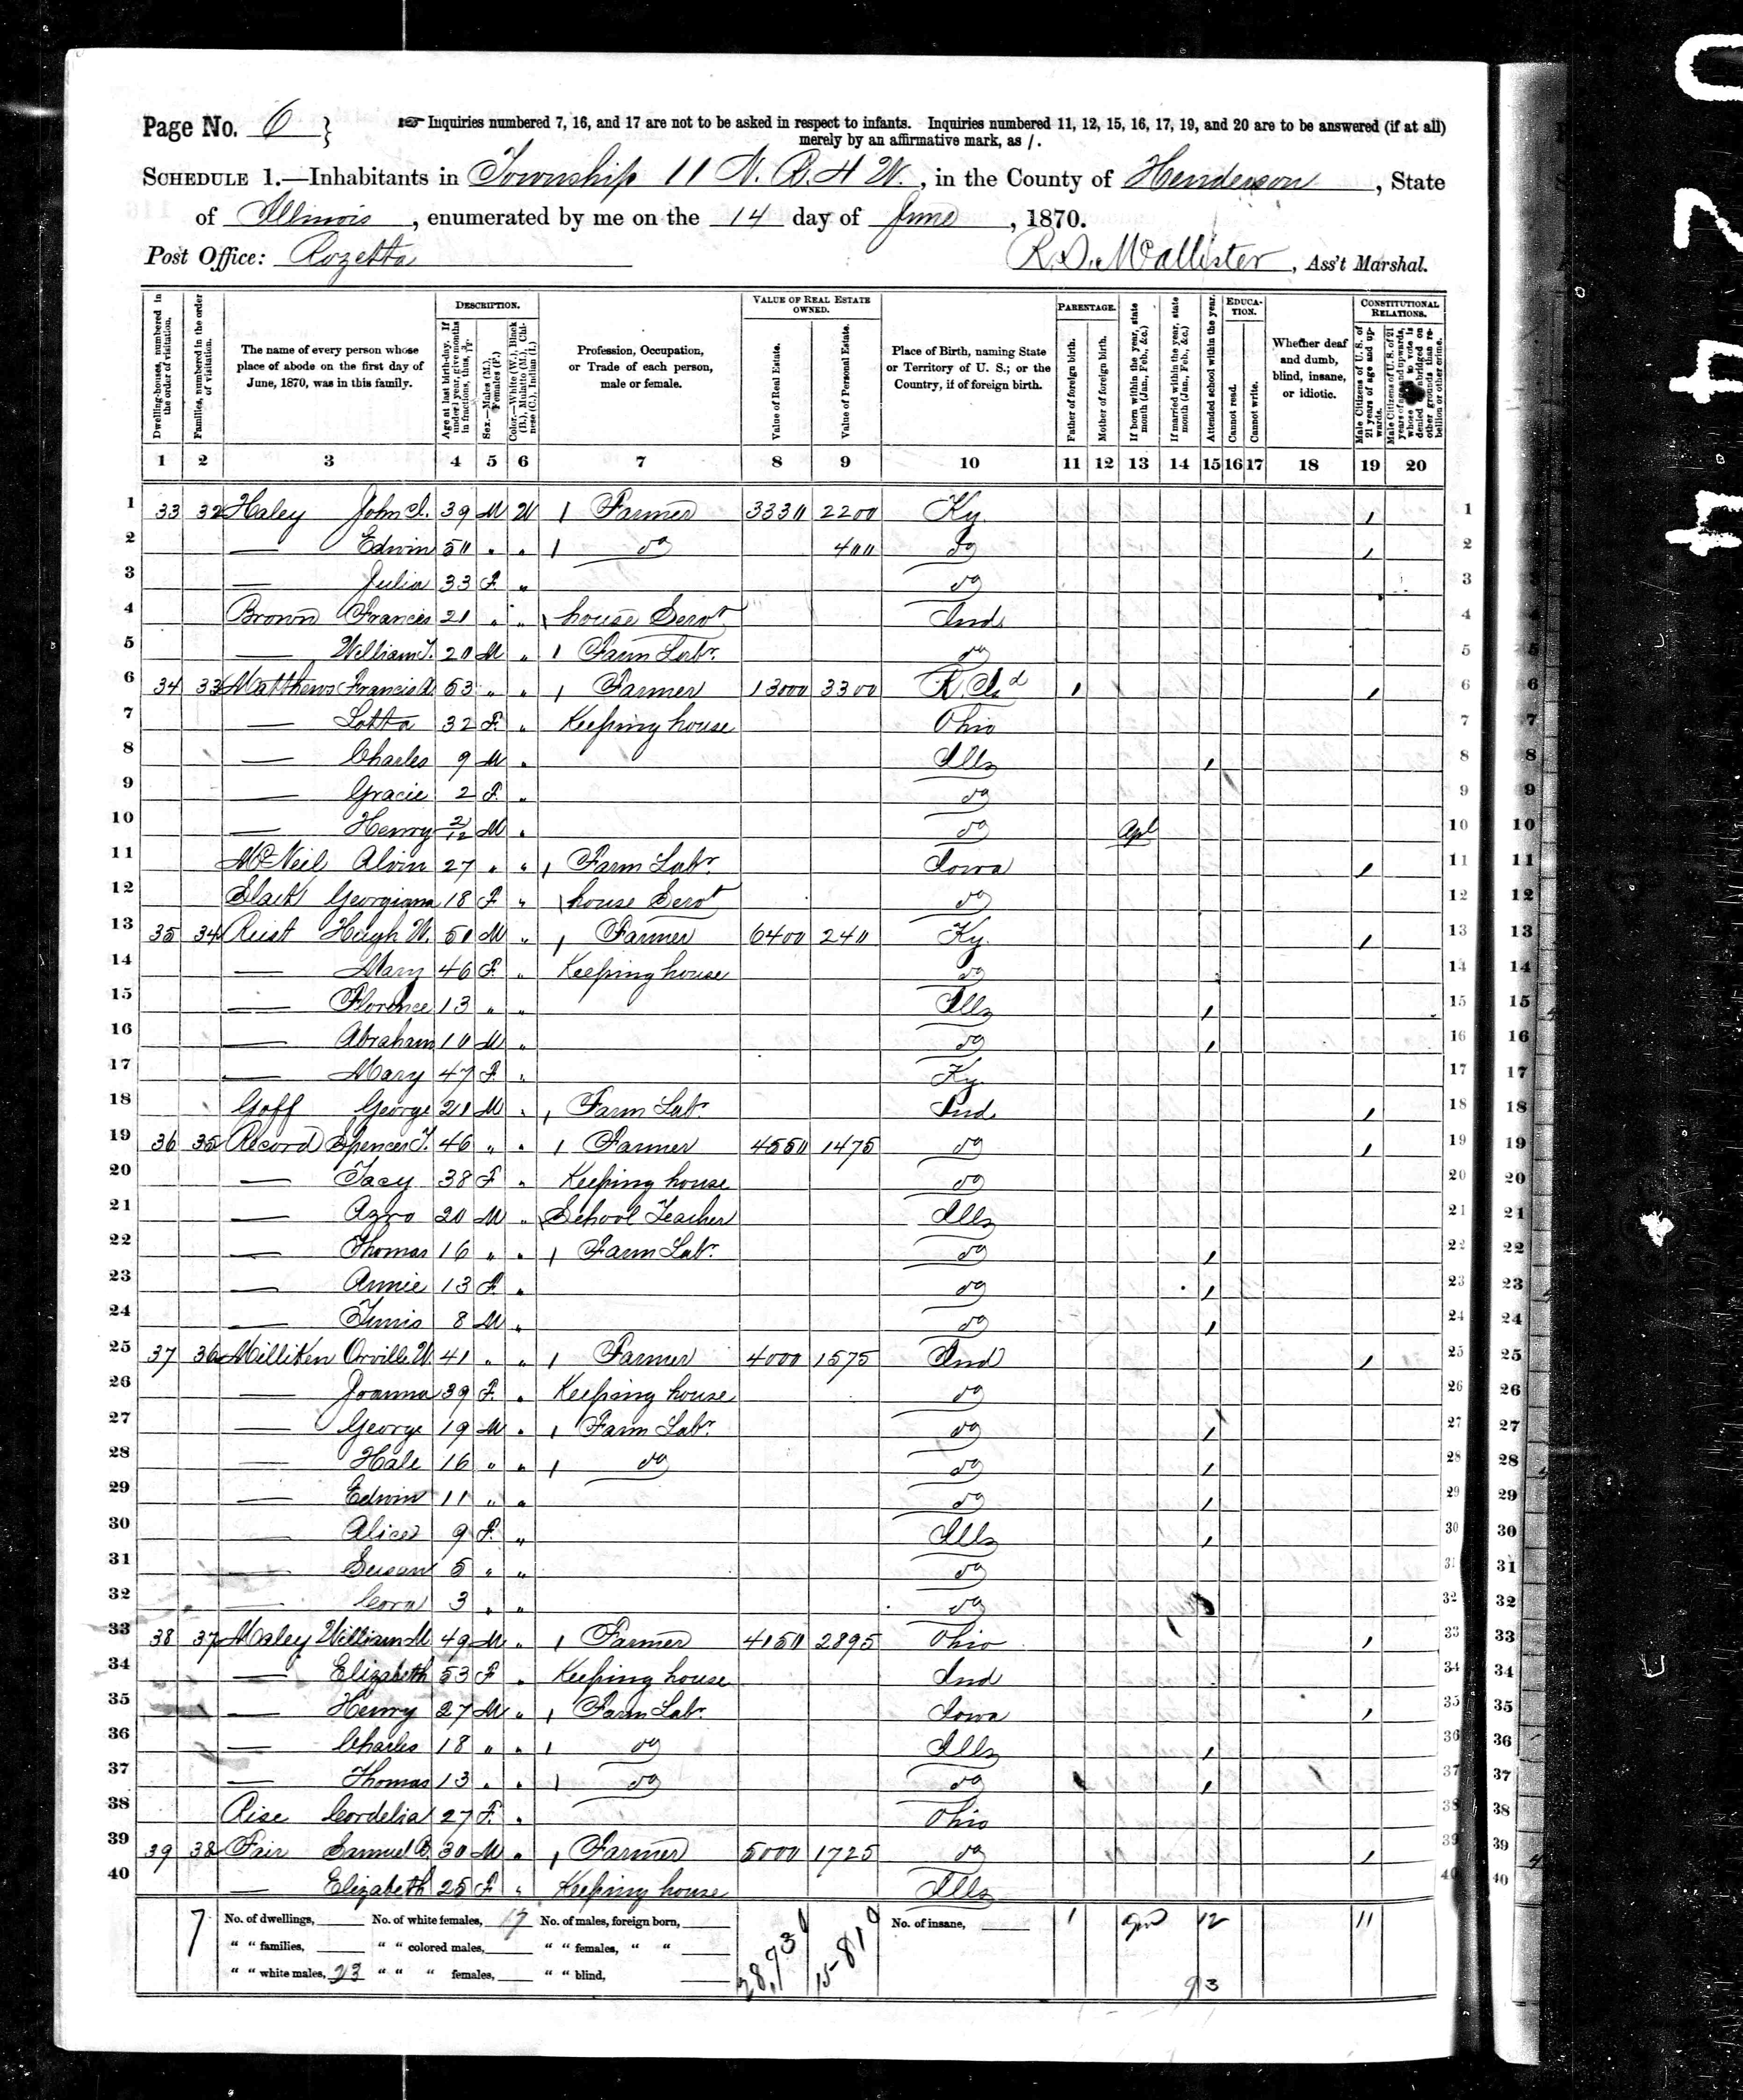 Page No. 6 }
☞ Inquiries numbered 7, 16, and 17 are not to be asked in respect to infants. Inquiries numbered 11, 12, 15, 16, 17, 19, and 20 are to be answered (if at all)
merely by an affirmative mark, as /.
SCHEDULE 1.—Inhabitants in Township 11 N. R. 4 W., in the County of Henderson, State
of Illinois, enumerated by me on the 14 day of June, 1870.
Post Office: Rozetta
McAllister, Ass't Marshal.
Dwelling-houses, numbered in the order of visitation.
Families, numbered in the order of visitation.
The name of every person whose place of abode on the first day of June, 1870, was in this family.
DESCRIPTION.
Age at last birth-day. If under 1 year, give months in fractions, thus, 3/12.
Sex.—Males (M.), Females (F.)
Color.—White (W.), Black (B.), Mulatto (M.), Chinese (C.), Indian (I.)
Profession, Occupation, or Trade of each person, male or female.
VALUE OF REAL ESTATE OWNED.
Value of Real Estate.
Value of Personal Estate.
Place of Birth, naming State or Territory of U. S.; or the Country, if of foreign birth.
PARENTAGE.
Father of foreign birth.
Mother of foreign birth.
If born within the year, state month (Jan., Feb., &c.)
If married within the year, state month (Jan., Feb., &c.)
Attended school within the year.
EDUCATION.
Cannot read.
Cannot write.
Whether deaf and dumb, blind, insane, or idiotic.
CONSTITUTIONAL RELATIONS.
Male Citizens of U. S. of 21 years of age and upwards.
Male Citizens of U. S. of 21 years of age and upwards, whose right to vote is denied or abridged on other grounds than rebellion or other crime.
1 2 3 4 5 6 7 8 9 10 11 12 13 14 15 16 17 18 19 20
1 33 32 Haley John 39 M W 1 Farmer 3330 2200 Ky. / 1
2 — Edwin 50 " " 1 do 400 do / 2
3 — Julia 33 F " do 3
4 Brown Frances 21 " " house Servt Ind. 4
5 — William T. 20 M " 1 Farm Labr. do 5
6 34 33 Matthews Francis A. 53 " " 1 Farmer 13000 3300 / / 6
7 — Lotta 32 F. " Keeping house Ohio 7
8 — Charles 9 M " Ills / 8
9 — Gracie 2 F. " do 9
10 — Henry 2/12 M " do Apl 10
11 McNeil Alvin 27 " " 1 Farm Labr. Iowa / 11
12 Slack Georgiana 18 F " house Servt do 12
13 35 34 Rust Hugh W. 50 M " 1 Farmer 6400 240 Ky. / 13
14 — Mary 46 F. " Keeping house do 14
15 — Florence 13 " " Ills / 15
16 — Abraham 10 M " do / 16
17 — Mary 47 F " Ky. 17
18 Goff George 21 M " 1 Farm Labr. Ind. / 18
19 36 35 Record Spencer T. 46 " " 1 Farmer 4550 1475 do / 19
20 — Tacy 38 F " Keeping house do 20
21 — Azro 20 M " School Teacher Ills 21
22 — Thomas 16 " " 1 Farm Labr. do / 22
23 — Annie 13 F " do / 23
24 — Tunis 8 M " do / 24
25 37 36 Milliken Orville W. 41 " " 1 Farmer 4000 1575 Ind / 25
26 — Joanna 39 F. " Keeping house do 26
27 — George 19 M " 1 Farm Labr. do / 27
28 — Hale 16 " " 1 do do / 28
29 — Edwin 11 " " do / 29
30 — Alice 9 F. " Ills / 30
31 — Susan 5 " " do 31
32 — Cora 3 " " do 32
33 38 37 Maley William M 49 M " 1 Farmer 4150 2895 Ohio / 33
34 — Elizabeth 53 F " Keeping house Ind 34
35 — Henry 27 M " 1 Farm Labr. Iowa / 35
36 — Charles 18 " " 1 do Ills / 36
37 — Thomas 13 " " 1 do do / 37
38 Rise Cordelia 27 F. " Ohio 38
39 39 38 Fair Samuel 30 M " 1 Farmer 5000 1725 do / 39
40 — Elizabeth 25 F " Keeping house Ills 40
7 No. of dwellings, No. of white females, 17 No. of males, foreign born, No. of insane, 1 12 11
" " families, " " colored males, " " females, " "
" " white males, 23 " " " females, " " blind,